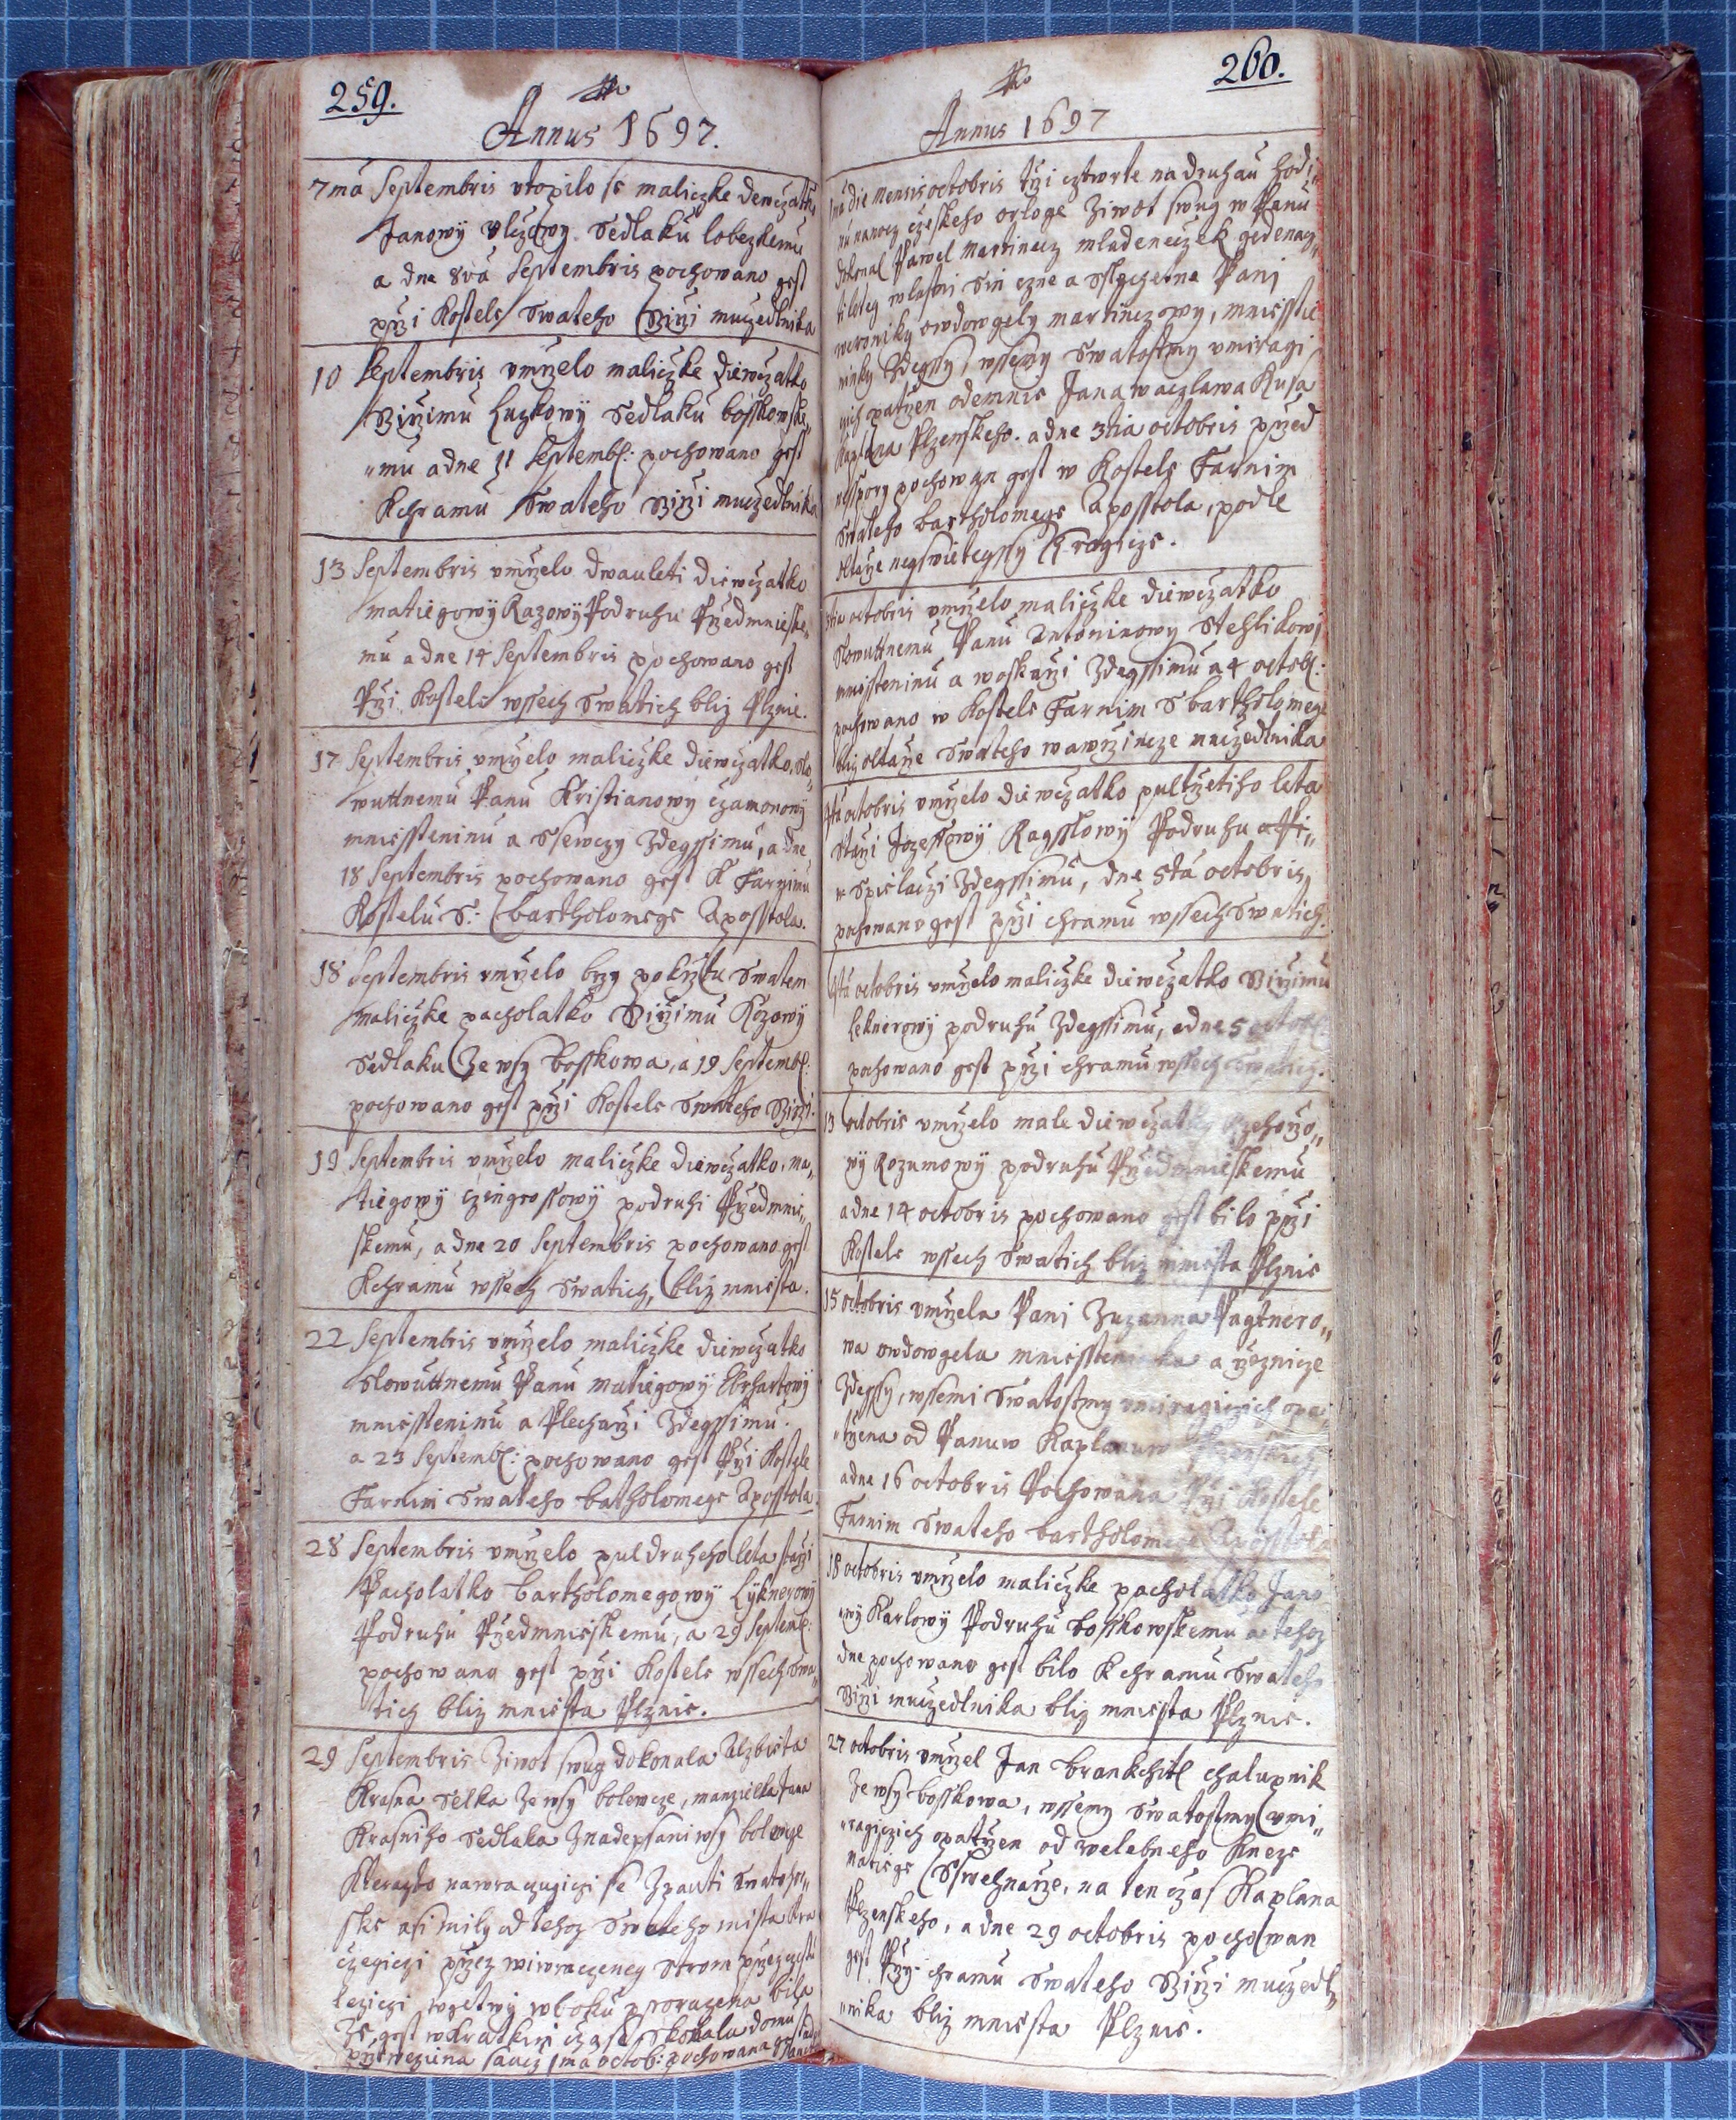 259.
Annus 1697.
7má Septembris utopilo se maliczke dewczatko
Janowÿ Vlczowy Sedlaku lobezkemu
a dne 8vá Septembris pochowano gest
przi Kostele Swateho Girzi muczedlnika
10 Septembris umrzelo maliczke diewczatko
Girzimu Luzkowÿ Sedlaku bosskowske„
„mu a dne 11 Septemb: pochowano gest
K chramu Swateho Girzi muczedlnika
13 Septembris umrzelo dwauleti diewczatko
matiegowÿ Razowÿ Podruhu Przedmnieske„
mu a dne 14 Septembris pochowano gest
Przi Kostele wssech Swatich bliz Plznie.
17 Septembris umrzelo maliczke diewczatko, Slo„
wuttnemu Panu Kristianowy czamonowÿ
mniessteninu a Ssewczy Zdegssimu, a dne
18 Septembris pochowano gest K Farnimu
Kostelu S: bartholomege Aposstola.
18 Septembris umrzelo bzy po krztu Swatem
maliczke pacholatko Girzimu Kozowÿ
Sedlaku Ze wsy bosskowa, a 19 Septemb:
pochowano gest przi Kostele Swateho Girzi.
19 Septembris umrzelo maliczke diewczatko, ma„
tiegowÿ czingrossowÿ podruhi Przedmnie„
skemu, a dne 20 Septembris pochowano gest
K chramu wssech Swatich, bliz mniesta.
22 Septembris umrzelo maliczke diewczatko
Slowuttnemu Panu matiegowÿ Ebrhartowÿ
mniessteninu a Plecharzi Zdegssimu.
a 23 Septemb: pochowano gest Przi Kostele
Farnim Swateho batholomege Aposstola.
28 Septembris umrzelo puldruheho leta starzi
Pacholatko bartholomegowÿ Lÿknerowÿ
Podruhu Przedmnieskemu, a 29 Septemb:
pochowano gest przi Kostele wssech Swa„
tich bliz mniesta Plznie.
29 Septembris Ziwot swug dokonala Alzbieta
Krasna Selka Ze wsÿ bolewcze, manzielka Jana
Krasniho Sedlaka Z nadepsani wsÿ bolewcze
Kterazto nawraczugiczi se Z pauti Swatohor„
ske asi mily od tehoz Swateho mista kra
czegiczi przez wiwraczeneg Strom przez czestu
leziczi wgetwÿ w boku porazena bila
Ze gest w kratkim czase skonala domu
przwezena saucz 1má octob: pochowana gest
260.
Annus 1697
1má die Mensis octobris trzi cztwrte na druhau hodi„
nu na nocz czeskeho orloge Ziwot swug w Panu
dokonal Pawel Martinecz mladenczek gedenacz„
tileteg wlastni Sin czne a Slechetne Pani
weroniky owdowgely martinczowy, mniesstie
ninky Zdegssy, wssemy Swatostmy umiragi
czich patrzen odemnie Jana waczlawa Kusa
Kaplana Plzenskeho. a dne 3tia octobris przed
nesspory pochowan gest w Kostele Farnim
Swateho bartholomege Aposstola, podle
oltarze negswietegssy Kragicze.
3tia octobris umrzelo maliczke diewczatko
Slowuttnemu Panu Antoninowy Stehlikowi
mniessteninu a woskarzi Zdegssimu a 4 octob:
pochowano w Kostele Farnim S bartholomege
bliz oltarze Swateho wawrzincze muczedlnika
4tá octobris umrzelo diewczatko pultrzetiho leta
Starzi Jozeffowÿ Ragsslowÿ Podruhu a Pi„
w Spielaczi Zdegssimu, dne 5tá octobris,
pochowano gest przi chramu wssech Swatich.
4tá octobris umrzelo maliczke diewczatko Girzimu
leknerowÿ podruhu Zdegssimu, a dne 5 octob:
pochowano gest przi chramu wssech Swatich.
13 octobris umrzelo male diewczatko Rzehorzo„
wÿ Rozumowÿ podruhu Przedmnieskemu
a dne 14 octobris pochowano gest bilo przi
Kostele wssech Swatich bliz mniesta Plznie
15 octobris umrzela Pani Zuzanna Pagtnero„
wa owdowgela mniessteninka a rzeznicze
Zdegssy, wssemi Swatostmy umiragiczich opa„
„trzena od Panuw Kaplanuw Plzenskich,
a dne 16 octobris Pochowana Przi Kostele
Farnim Swateho bartholomege Aposstola
18 octobris umrzelo maliczke pacholatko Jano
wÿ Karlowÿ Podruhu bosskowskemu a tehoz
dne pochowano gest bilo K chramu Swateho
Girzi muczedlnika bliz mniesta Plznie.
27 octobris umrzel Jan brankchitl chalupnik
Ze wsy bosskowa, wssemy Swatostmy umi„
„ragiczich opatrzen od welebneho Kneze
matiege Sswehnarze, na ten czas Kaplana
Plzenskeho, a dne 29 octobris pochowan
gest Przy chramu Swateho Girzi muczedl„
„nika bliz mniesta Plznie.